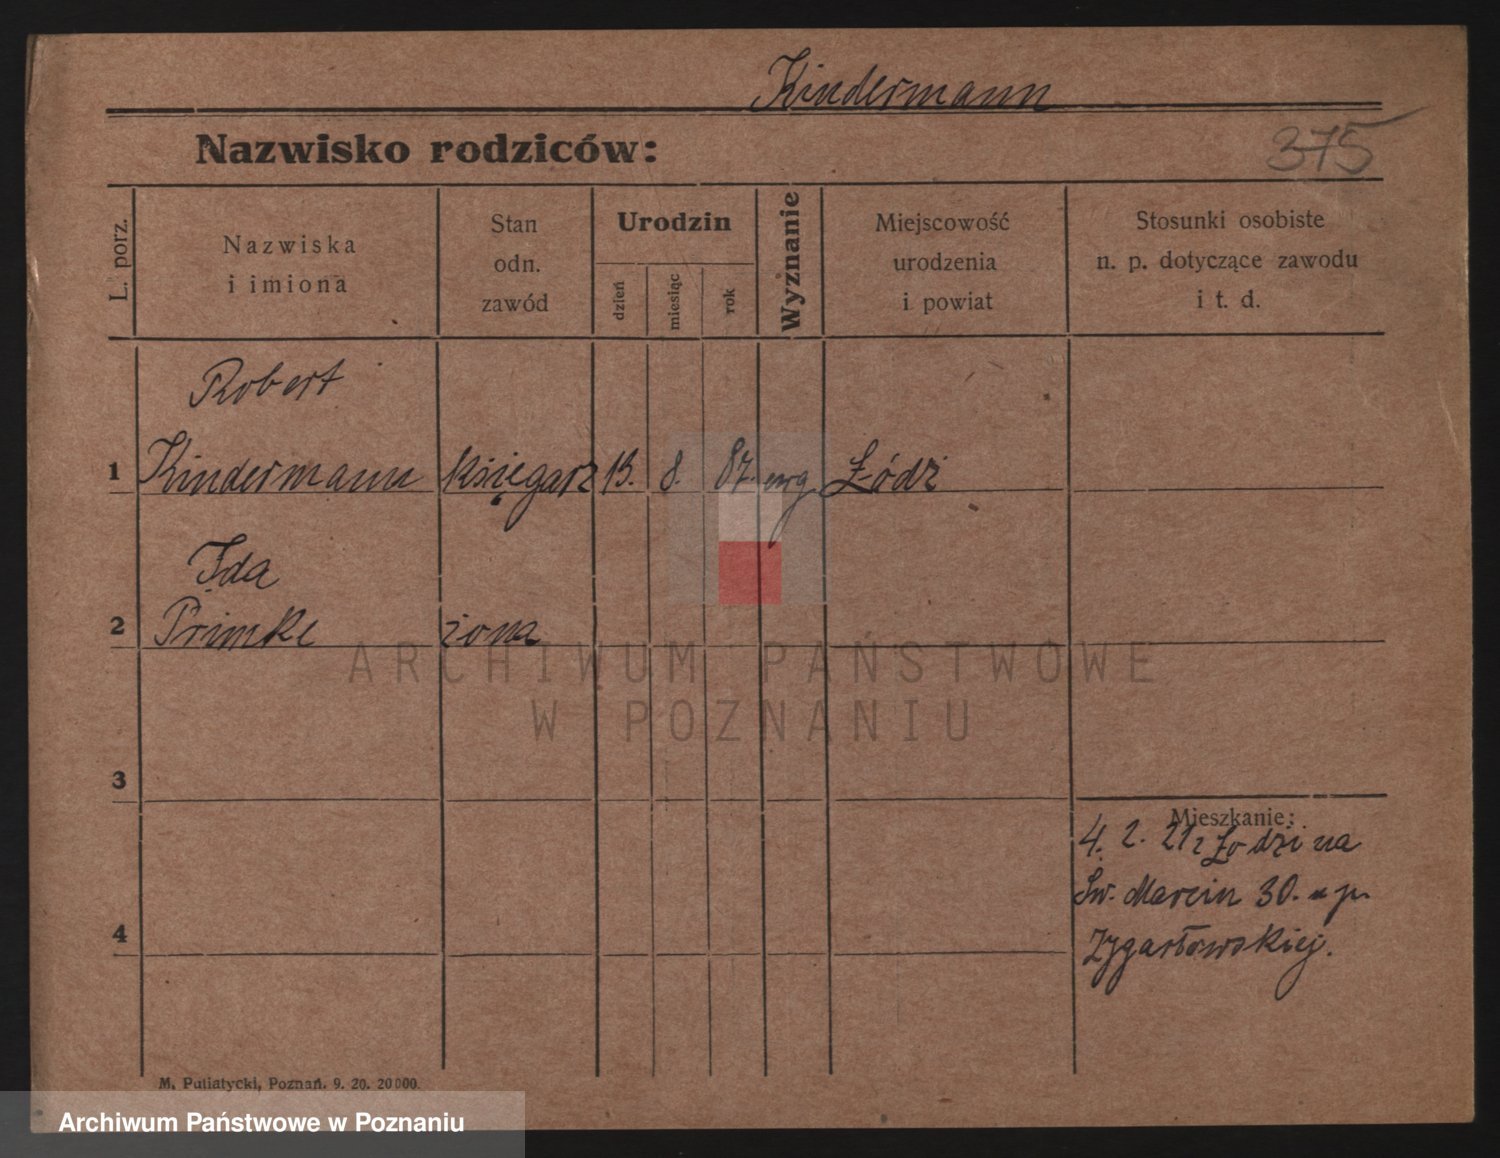 Kindermann
Nazwisko rodziców:
375
L. porz.
Nazwiska
i imiona
Stan
odn.
zawód
Urodzin
dzień
miesiąc
rok
Wyznanie
Miejscowość
urodzenia
i powiat
Stosunki osobiste
n. p. dotyczące zawodu
i t. d.
Robert
1 Kindermann księgarz 13. 8. 87. Łódź
Ida
2 Primke żona
ARCHIWUM PAŃSTWOWE
W POZNANIU
3
Mieszkanie:
4. 2. 21 z Łodzi na
Św. Marcin 30. u p.
4
Zygarłowskiej.
M. Putiatycki, Poznań. 9. 20. 20000.
Archiwum Państwowe w Poznaniu